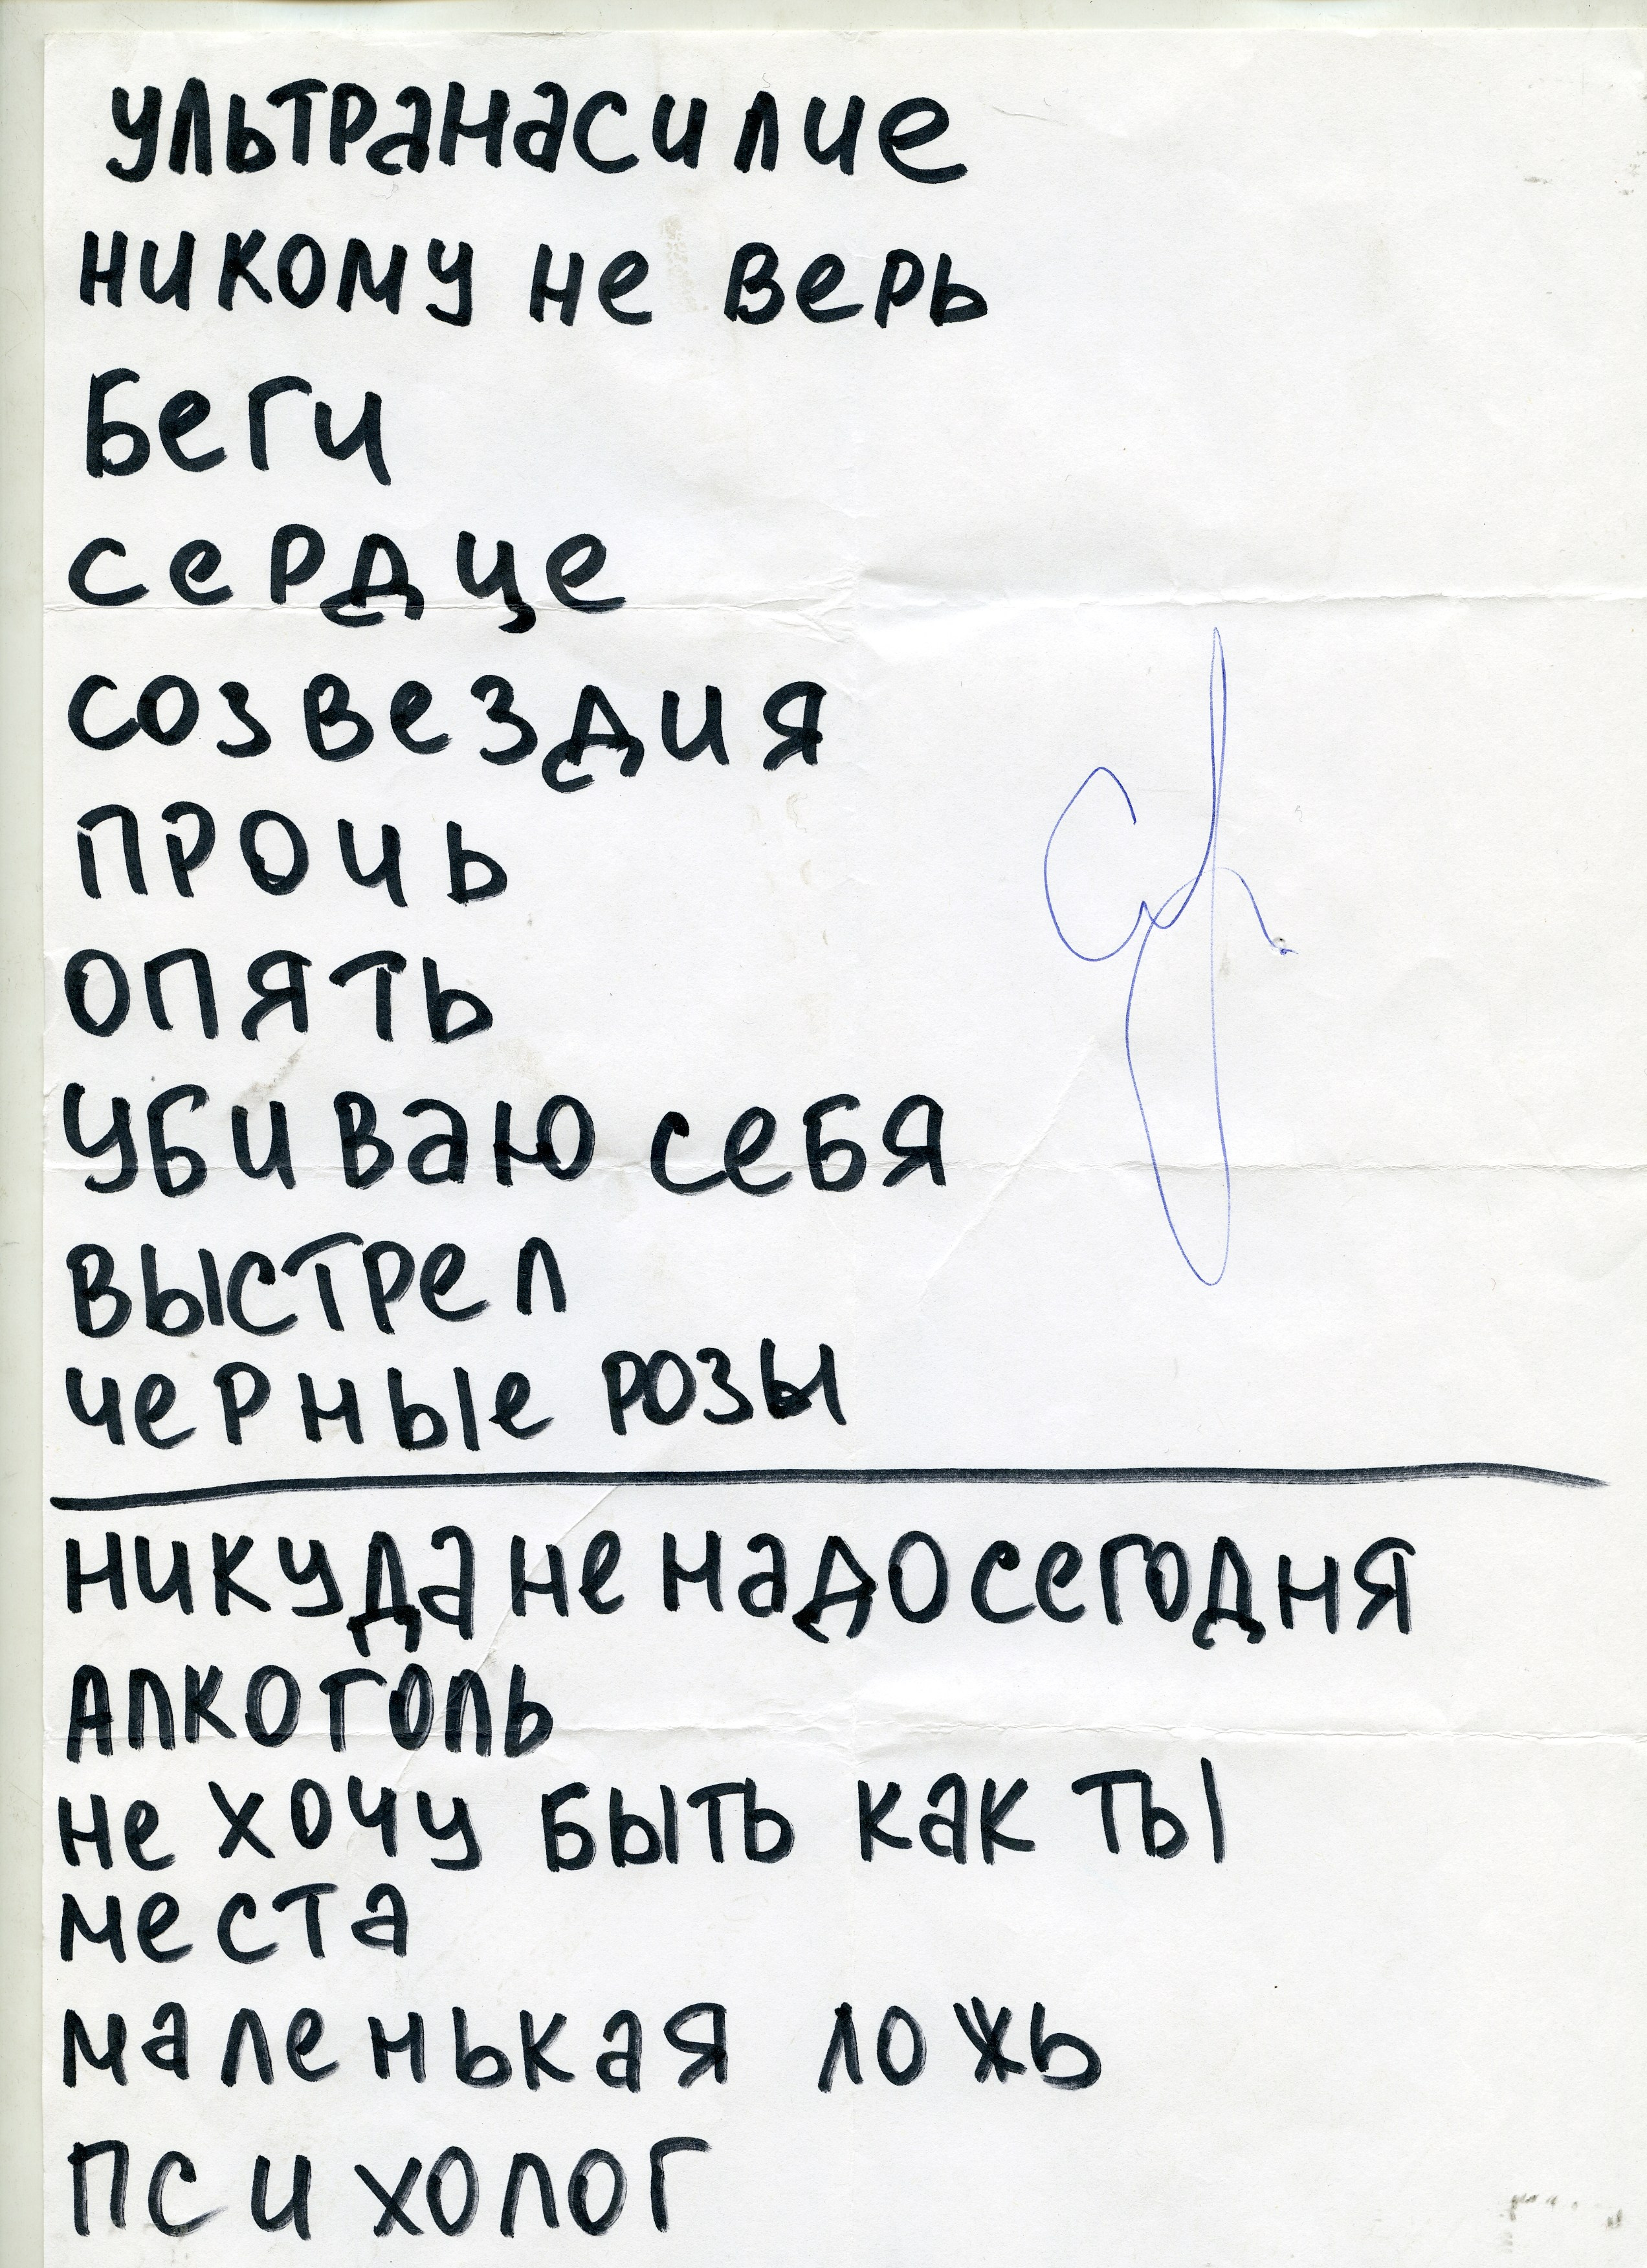 ультранасилие
никому не верь
Беги
сердце
созвездия
прочь
опять
убиваю себя
выстрел
черные розы
никуда не надо сегодня
Алкоголь
не хочу быть как ты
места
маленькая ложь
психолог